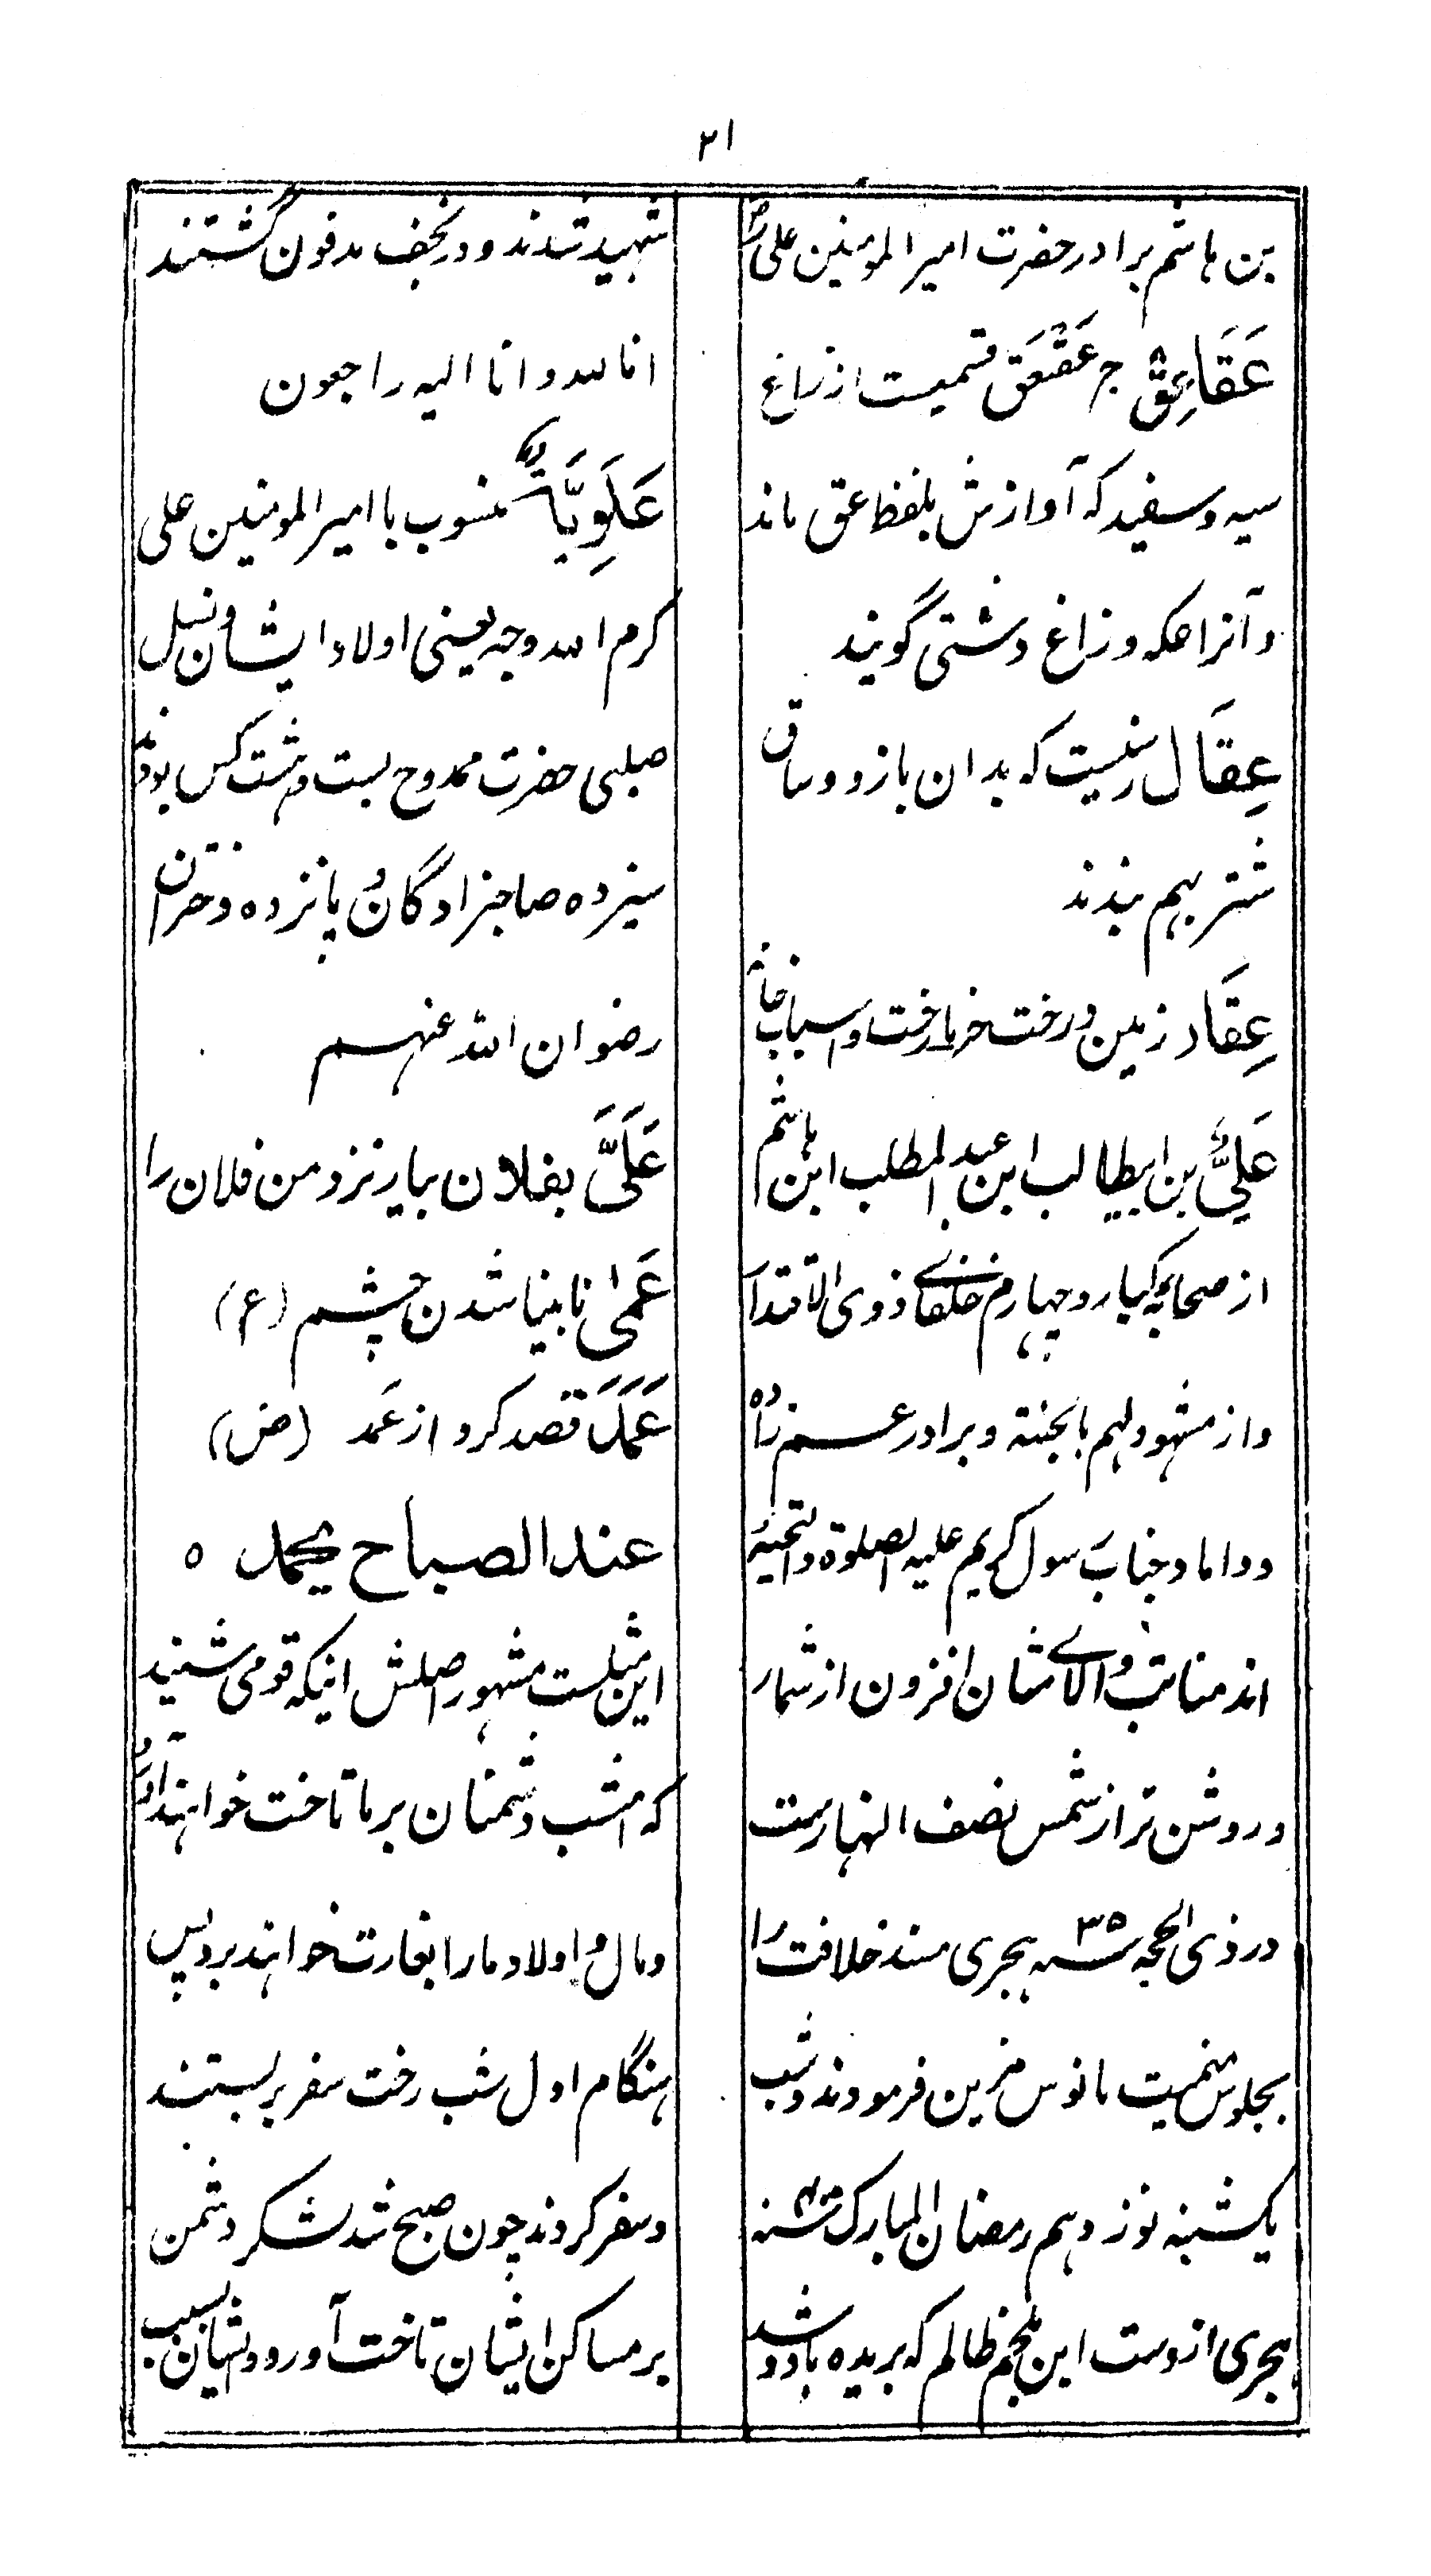 ۲۱
بن هاشم برادر حضرت امیر المومنین علی رض
عَقَائِقُ ج عَقْعَق قسمیست از زاغ
سیه و سفید که آوازش بلفظ عق ماند
و آنرا عکه و زاغ دشتی گویند
عِقَال رسنیست که بدان بازو و ساق
شتر بهم بندند
عِقَاد زمین و درخت خرما و رخت و اسباب خانه
عَلِیٌّ بن ابیطالب ابن عبد المطلب ابن هاشم
از صحابهٔ کبار و چهارم خلفاے ذوی الاقتدار
و از مشهود لهم بالجنة و برادر عم زاده
و داماد جناب رسول کریم علیه الصلوة والتحیة
اند مناقب والاے شان افزون از شمار
و روشن تر از شمس نصف النهارست
در ذی الحجه سنه ۳۵ هجری مسند خلافت را
بجلوس میمنت مانوس مزین فرمودند و شب
یکشنبه نوزدهم رمضان المبارک سنه
هجری از دست ابن ملجم ظالم که بریده باد دو دستش
شهید شدند و در نجف مدفون گشتند
انا لله و انا الیه راجعون
عَلَوِیَّاتٌ منسوب با امیر المومنین علی
کرم الله وجه یعنی اولاد ایشان و نسل
صلبی حضرت ممدوح بست و هشت کس بودند
سیزده صاحبزادگان و پانزده دختران
رضوان الله عنهم
عَلَیَّ بفلان بیار نزد من فلان را
عَمیٰ نابینا شدن چشم (ع)
عَمَدَ قصد کرد از عَمد (ض)
عند الصباح یحمد ٥
این مثلست مشهور اصلش اینکه قومی شنید
که امشب دشمنان بر ما تاخت خواهند آورد
و مال و اولاد ما را بغارت خواهند برد پس
هنگام اول شب رخت سفر بربستند
و سفر کردند چون صبح شد لشکر دشمن
بر مساکن ایشان تاخت آورد و ایشان بسبب